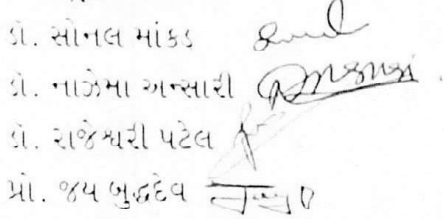 ડો. સોનલ માંકડ
ડો. નાઝેમા અન્સારી
ડો. રાજેશ્વરી પટેલ
પ્રો. જય બુદ્ધદેવ